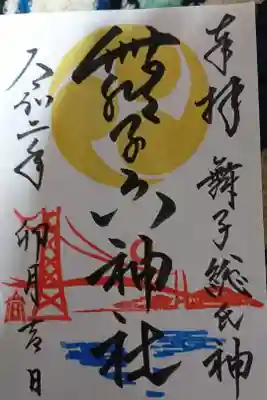 奉拝 舞子総氏神
舞子六神社
令和二年 卯月吉日